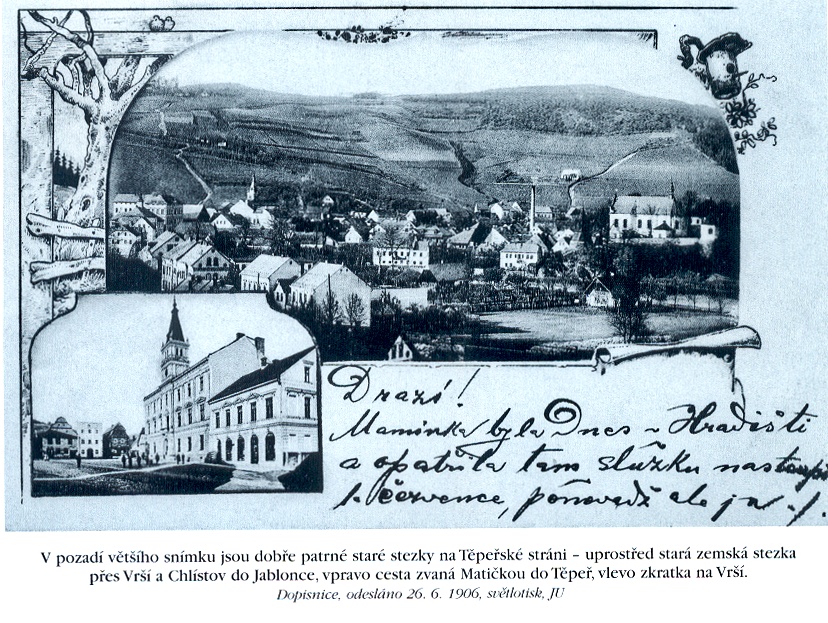 Drazí!
Maminka byla Dnes v Hradišti
a opatřila tam služku nastoupí
1. července, poňevadž ale je
V pozadí většího snímku jsou dobře patrné staré stezky na Těpeřské stráni – uprostřed stará zemská stezka
přes Vrší a Chlístov do Jablonce, vpravo cesta zvaná Matičkou do Těpeř, vlevo zkratka na Vrší.
Dopisnice, odesláno 26. 6. 1906, světlotisk, JU